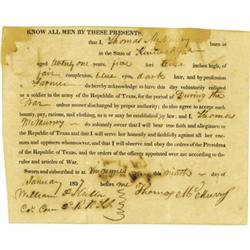 KNOW ALL MEN BY THESE PRESENTS
that I, Thomas McMurry born
in the State of Kentucky
aged twenty one years, five feet inches high,
fair complexion, blue eyes, dark hair, and by profession
a Farmer do hereby acknowledge to have this day voluntarily enlisted
as a soldier in the army of the Republic of Texas, for the period of During the
War unless sooner discharged by proper authority; do also agree to accept such
bounty, pay, rations, and clothing, as is or may be established by law. And I, Thomas
McMurry do solemnly swear that I will bear true faith and allegiance
to the Republic of Texas and that I will serve her honestly and faithfully against all her
enemies and oppressors whatsoever, and observe and obey the orders of the President
of the Republic of Texas, and the orders of the officers appointed over me according to the rules
and articles of War.
Sworn and subscribed to at this day of
January 1837 before me Thomas McMurry
William